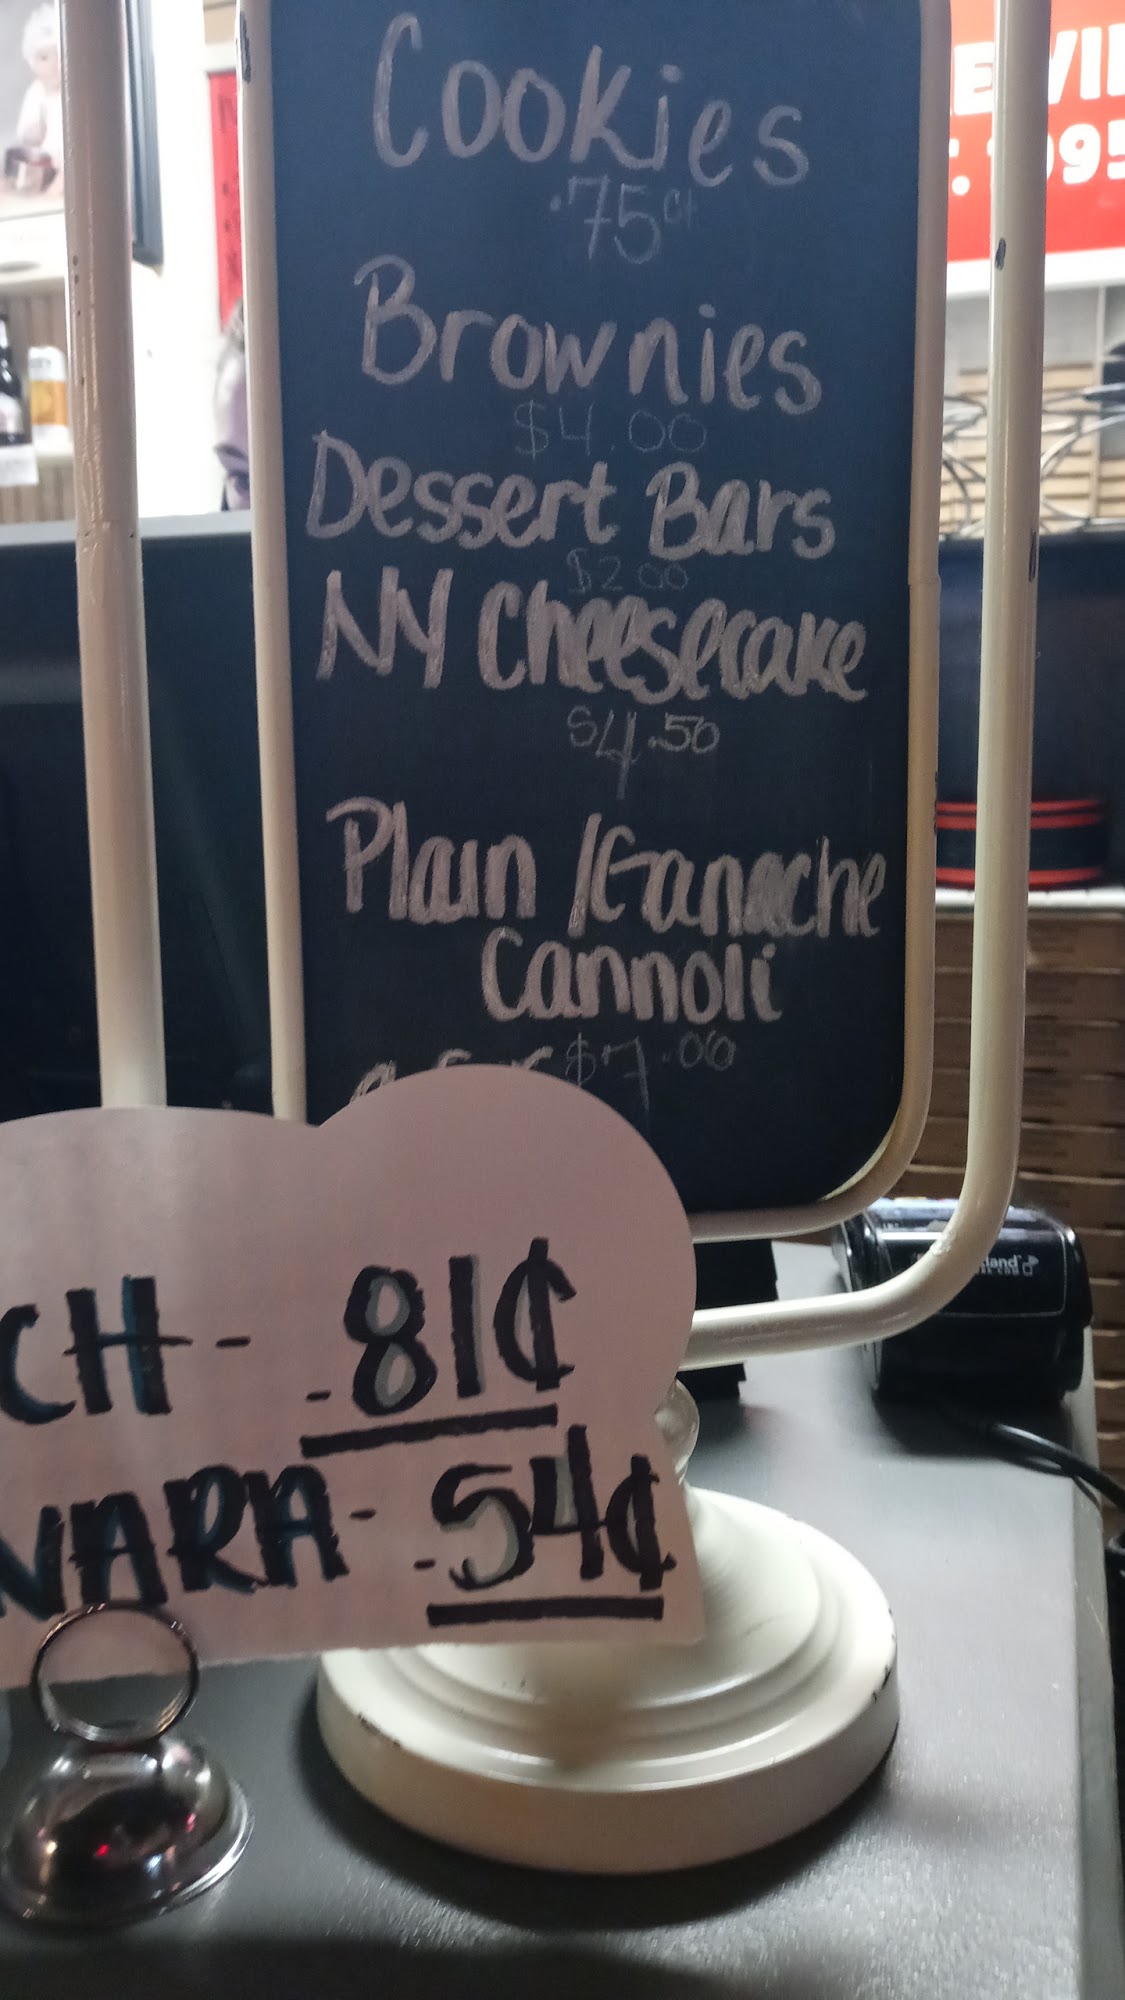 Cookies
.75ct
Brownies
$4.00
Dessert Bars
$2.00
NY Cheesecake
$4.50
Plain /Ganache
Cannoli
$7.00
CH - .81¢
NARA - .54¢